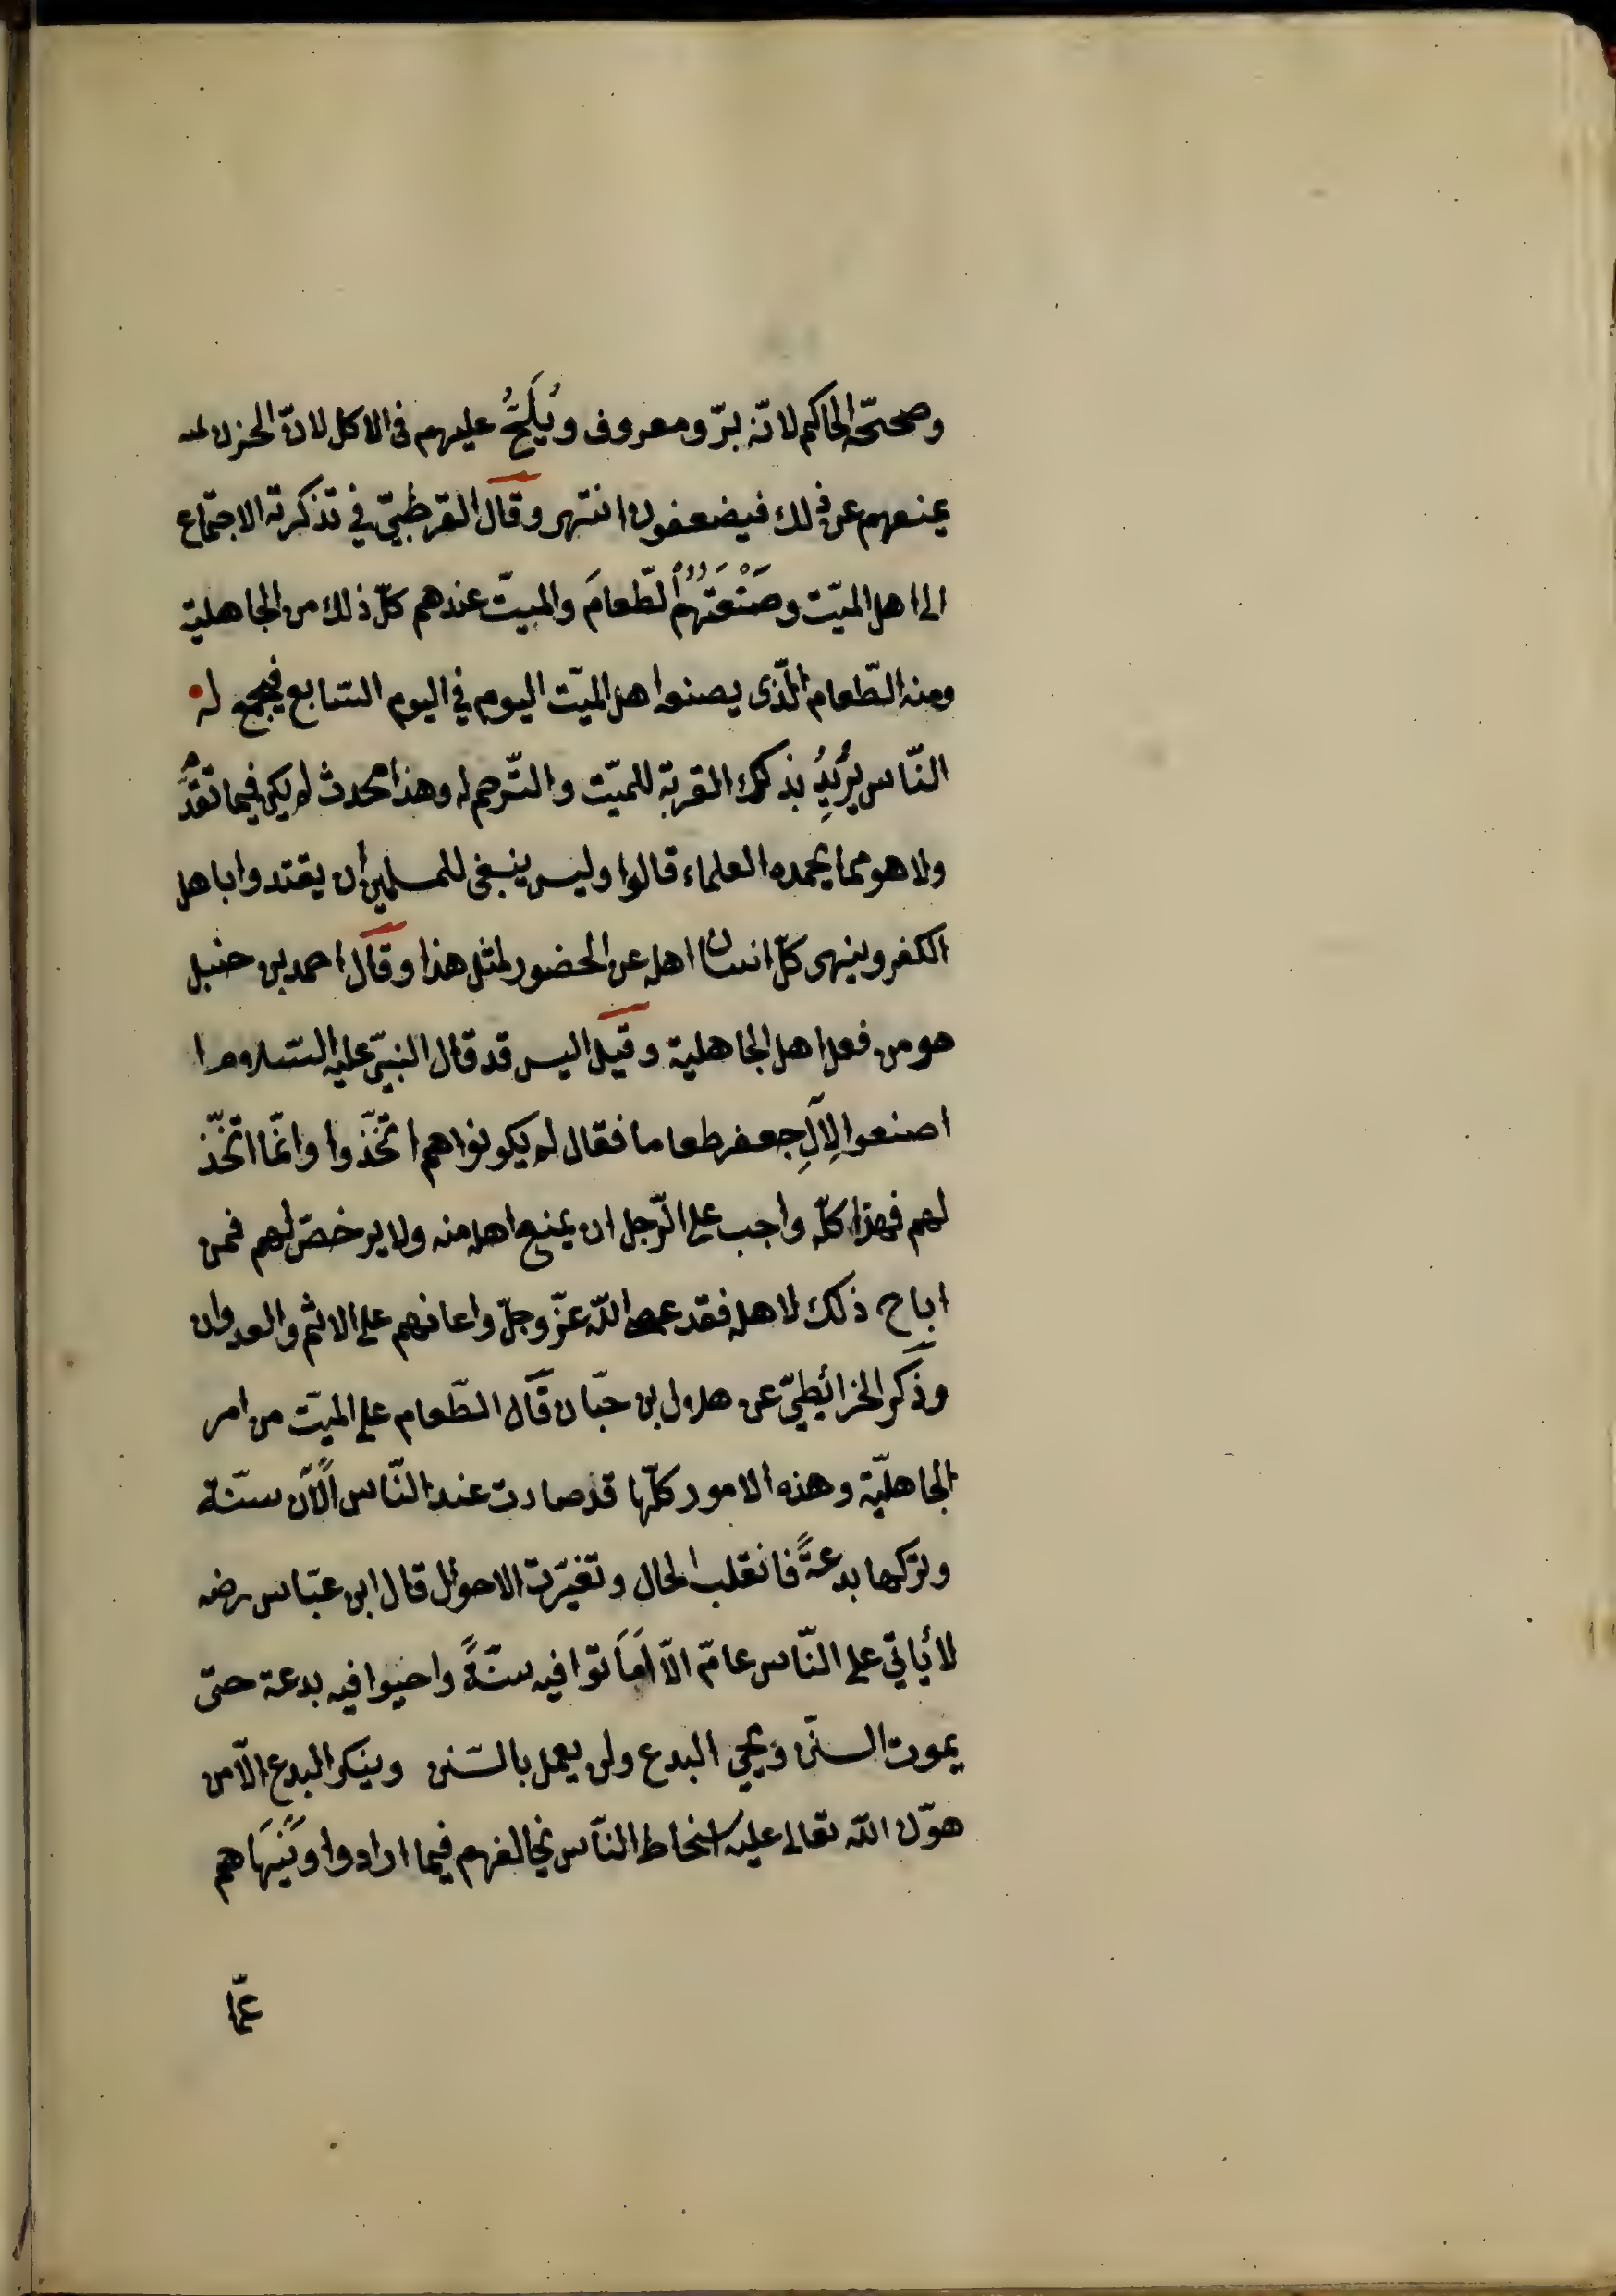 وصحّحه الحاكم لانّه برّ ومعروف ويُلَحُّ عليهم فى الاكل لانّ الحزن
يمنعهم عن ذلك فيضعفون انتهى وقال القرطبيّ في تذكرته الاجتماع
الى اهل الميّت وصَنْعَتُهُمُ الطّعامَ والمبيّت عندهم كلّ ذلك من الجاهلية
ومنه الطّعام الّذى يصنعه اهل الميّت اليوم في اليوم السّابع فيجمع له
النّاس يُرِيدُ بذلك القربة للميّت والتّرحم له وهذا محدث لم يكن فيما تقدَّم
ولا هو مما يحمده العلماء قالوا وليس ينبغى للمسلمين أن يقتدوا باهل
الكفر وينهى كلّ انسان اهله عن الحضور لمثل هذا وقال احمد بن حنبل
هو من فعل اهل الجاهلية وقيل اليس قد قال النبيّ عليه السّلام
اصنعوا لِآلِ جعفر طعاما فقال لم يكونوا هم اتّخذوا وانّما اتّخذ
لهم فهذا كلّه واجب على الرّجل ان يمنع اهله منه ولا يرخصّ لهم فمن
اباح ذلك لاهله فقد عصى اللّه عزّ وجلّ واعانهم على الاثم والعدوان
وذكر الخرائطيّ عن هلال بن حبّان قال الطّعام على الميّت من امر
الجاهليّة وهذه الامور كلّها قد صارت عند النّاس الآن سنّة
وتركها بدعةً فانقلب الحال وتغيّرت الاحوال قال ابن عبّاس رضه
لا يأتي على النّاس عامّ الّا اَمَاتوا فيه سنّةً واحيوا فيه بدعة حتّى
يموت السنّن ويحي البدع ولن يعمل بالسّنن وينكر البدع الّا من
هوّن اللّه تعالى عليه اسخاط النّاس بمخالفهم فيما ارادوا ونَهَاهم
عمّا